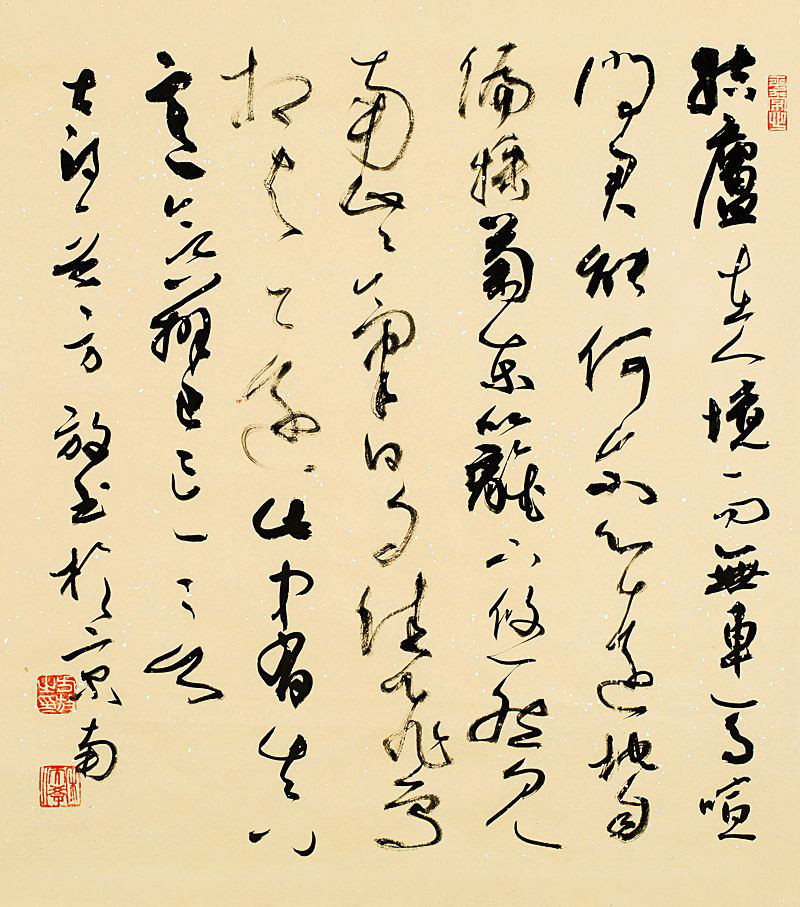 結廬在人境而無車馬喧
問君能何爾心遠地自
偏採菊東籬下悠然見
南山山氣日夕佳飛鳥
相與還此中有真
意欲辨已忘言
古 放書於京南